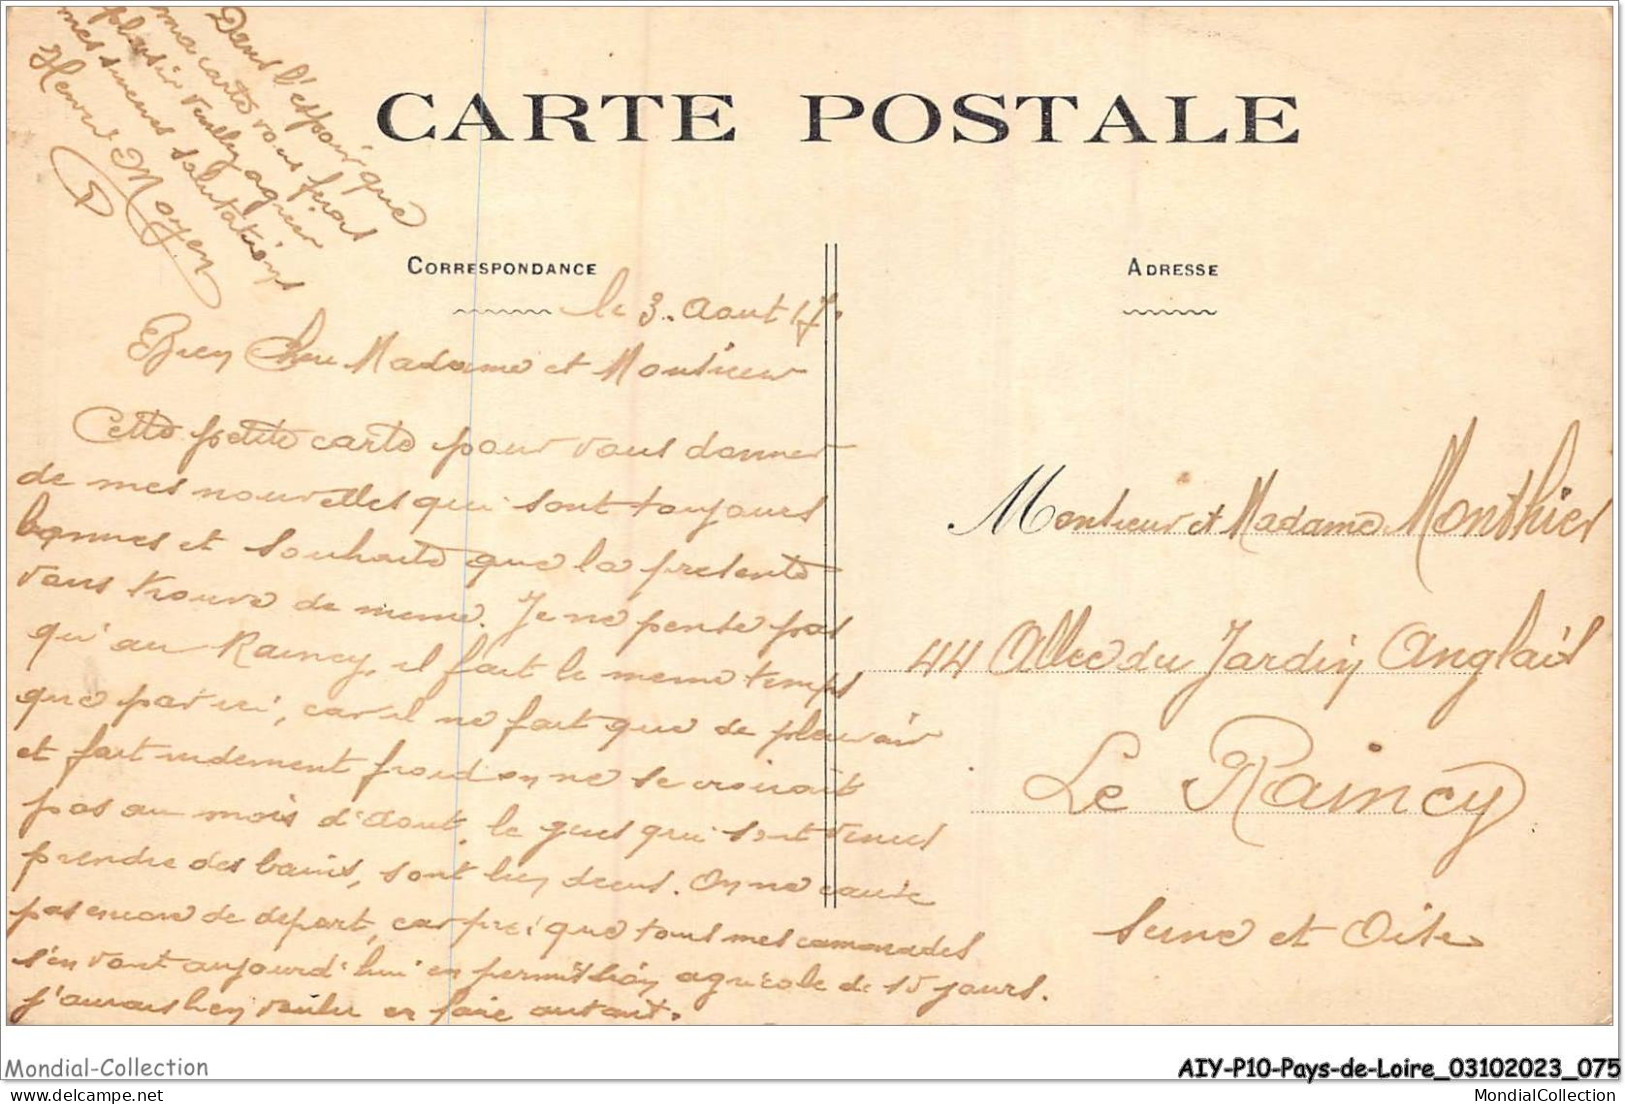 CARTE POSTALE
CORRESPONDANCE
le 3. Aout 17.
Bien Cher Madame et Monsieur
Cette petite carte pour vous donner
de mes nouvelles qui sont toujours
bonnes et souhaite que la presente
vous trouve de meme. Je ne pense pas
qu'au Raincy, il fait le meme temps
que par ici, car il ne fait que de pleuvoir
et fait rudement froid on ne se croirait
pas au mois d'aout, le gens qui sont venus
prendre des bains, sont bien deçus. On ne cause
pas encore de départ, car que tous mes camarades
s'en vont aujourd'hui en permission agricole de 15 jours.
j'aurais bien voulu en faire autant.
Dans l'espoir que
ma carte vous feras
plaisir veuillez agréer
mes sincères salutations
Henri Moyen
ADRESSE
Monsieur et Madame Monthier
44 Allee du Jardin Anglais
Le Raincy
Seine et Oise
Mondial-Collection
AIY-P10-Pays-de-Loire_03102023_075
delcampe.net
MondialCollection